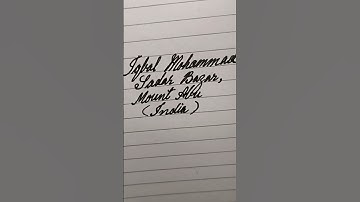 Iqbal Mohammad
Sadar Bazar,
Mount Abu
(India)